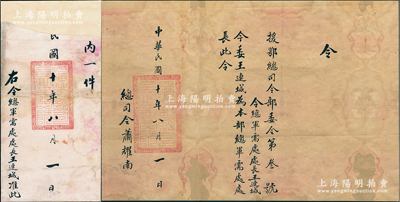 上海陽明拍賣
SHANGHAI YANGMING AUCTION
上海陽明拍賣
SHANGHAI YANGMING AUCTION
令
援鄂總司令部委令第叁號
令總軍需處處長王連城
今委王連城為本部總軍需處處
長此令
中華民國十年八月一日
總司令蕭耀南
內一件
民國十年八月一日
右令總軍需處處長王連城准此